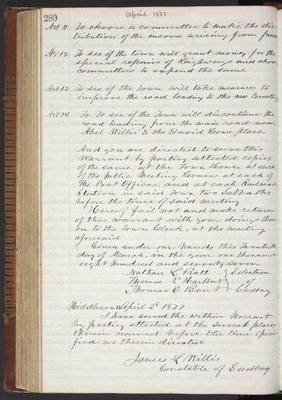 280
April 1877
Art 11 To choose a committee to make the dis-
tribution of the income arising from
Art 12 To see if the town will grant money for the
special repairs of highways and choose
committees to expend the same
Art 13 To see if the Town will take measures to
improve the road leading to the new Cemetery
Art 14 To see if the Town will discontinue the
road leading from the main road near
Abel Willis' to the David Howe place
And you are directed to serve this
Warrant by posting attested copies
of the same at the Town House at each
of the Public Meeting Houses at each of
the Post Offices and at each Railroad
Station in said Town two Sabbaths
before the time of said meeting
Hereof fail not and make return
of this warrant with your doings there
on to the Town Clerk, at the meeting
aforesaid
Given under our hands this Twentieth
day of March, in the year one thousand
eight hundred and seventy seven
Nathan L Pratt } Selectmen
Thomas L Hurlbut } of
Thomas P Bent } Sudbury
Middlesex April 2d 1877
I have served the within Warrant
by posting attested at the several places
therein named before the time speci-
fied as therein directed
James L Willis
Constable of Sudbury